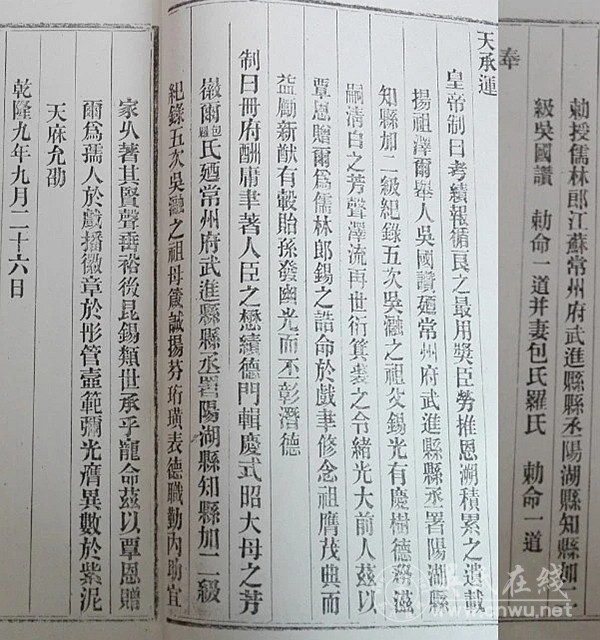 勅授儒林郎江蘇常州府武進縣縣丞陽湖縣知縣加二
級吳國讚　勅命一道并妻包氏羅氏　勅命一道
奉
天承運
皇帝制曰考績報循良之最用奬臣勞推恩溯積累之遺載
揚祖澤爾舉人吳國讚廼常州府武進縣縣丞署陽湖縣
知縣加二級紀錄五次吳瀜之祖父錫光有慶樹德務滋
嗣清白之芳聲澤流再世衍箕裘之令緒光大前人茲以
覃恩贈爾爲儒林郎錫之誥命於戲聿修念祖膺茂典而
益勵新猷有穀貽孫發幽光而丕彰潛德
制曰冊府酬庸聿著人臣之懋績德門輯慶式昭大母之芳
徽爾包羅氏廼常州府武進縣縣丞署陽湖縣知縣加二級
紀錄五次吳瀜之祖母箴誠揚芬珩璜表德職勤內助宜
家久著其賢聲垂裕後昆錫類世承乎寵命茲以覃恩贈
爾爲孺人於戲播徽章於彤管壼範彌光膺異數於紫泥
天庥允劭
乾隆九年九月二十六日
吳氏在線